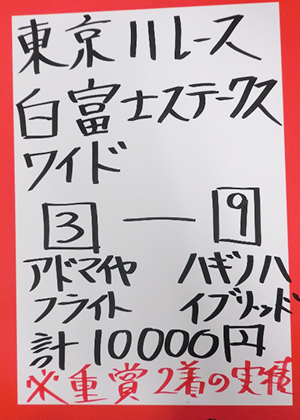 東京11レース
白富士ステークス
ワイド
3 — 9
アドマイヤ ハギノハ
フライト イブリッド
計10000円
※重賞2着の実績